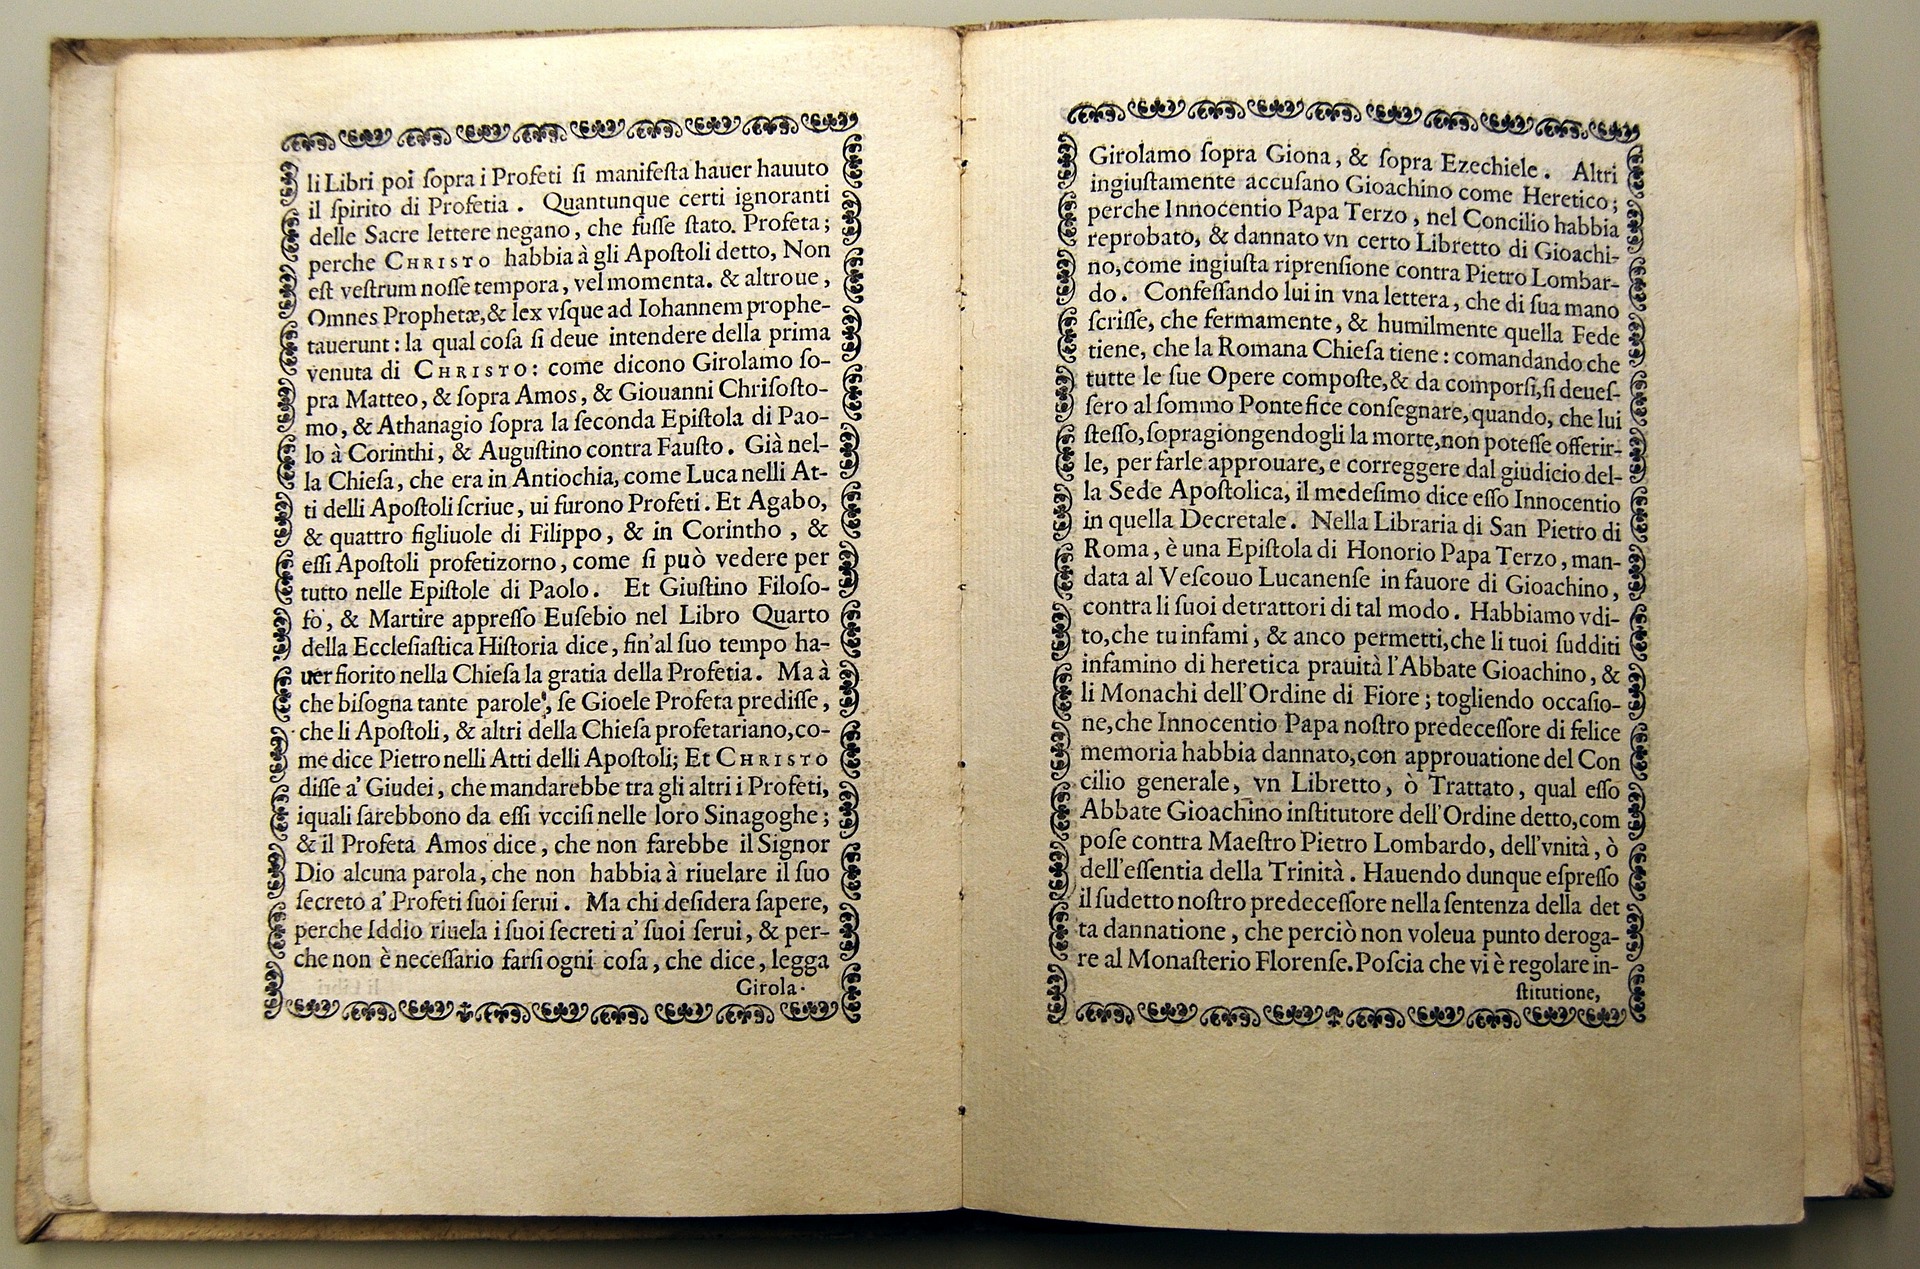 li Libri poi ſopra i Profeti ſi manifeſta hauer hauuto
il ſpirito di Profetia. Quantunque certi ignoranti
delle Sacre lettere negano, che fuſſe ſtato. Profeta;
perche CHRISTO habbia à gli Apoſtoli detto, Non
eſt veſtrum noſſe tempora, vel momenta. & altroue,
Omnes Prophetæ, & lex vſque ad Iohannem prophe-
tauerunt: la qual coſa ſi deue intendere della prima
venuta di CHRISTO: come dicono Girolamo ſo-
pra Matteo, & ſopra Amos, & Giouanni Chriſoſto-
mo, & Athanagio ſopra la ſeconda Epiſtola di Pao-
lo à Corinthi, & Auguſtino contra Fauſto. Già nel-
la Chieſa, che era in Antiochia, come Luca nelli At-
ti delli Apoſtoli ſcriue, ui furono Profeti. Et Agabo,
& quattro figliuole di Filippo, & in Corintho, &
eſſi Apoſtoli profetizorno, come ſi può vedere per
tutto nelle Epiſtole di Paolo. Et Giuſtino Filoſo-
fo, & Martire appreſſo Euſebio nel Libro Quarto
della Eccleſiaſtica Hiſtoria dice, fin'al ſuo tempo ha-
uer fiorito nella Chieſa la gratia della Profetia. Ma à
che biſogna tante parole, ſe Gioele Profeta prediſſe,
che li Apoſtoli, & altri della Chieſa profetariano, co-
me dice Pietro nelli Atti delli Apoſtoli; Et CHRISTO
diſſe a' Giudei, che mandarebbe tra gli altri i Profeti,
iquali ſarebbono da eſſi vcciſi nelle loro Sinagoghe;
& il Profeta Amos dice, che non farebbe il Signor
Dio alcuna parola, che non habbia à riuelare il ſuo
ſecreto a' Profeti ſuoi ſerui. Ma chi deſidera ſapere,
perche Iddio riuela i ſuoi ſecreti a' ſuoi ſerui, & per-
che non è neceſſario farſi ogni coſa, che dice, legga
Girola-
Girolamo ſopra Giona, & ſopra Ezechiele. Altri
ingiuſtamente accuſano Gioachino come Heretico;
perche Innocentio Papa Terzo, nel Concilio habbia
reprobato, & dannato vn certo Libretto di Gioachi-
no, come ingiuſta riprenſione contra Pietro Lombar-
do. Confeſſando lui in vna lettera, che di ſua mano
ſcriſſe, che fermamente, & humilmente quella Fede
tiene, che la Romana Chieſa tiene: comandando che
tutte le ſue Opere compoſte, & da comporſi, ſi deueſ-
ſero al ſommo Pontefice conſegnare, quando, che lui
ſteſſo, ſopragiongendogli la morte, non poteſſe offerir-
le, per farle approuare, e correggere dal giudicio del-
la Sede Apoſtolica, il medeſimo dice eſſo Innocentio
in quella Decretale. Nella Libraria di San Pietro di
Roma, è una Epiſtola di Honorio Papa Terzo, man-
data al Veſcouo Lucanenſe in fauore di Gioachino,
contra li ſuoi detrattori di tal modo. Habbiamo vdi-
to, che tu infami, & anco permetti, che li tuoi ſudditi
infamino di heretica prauità l'Abbate Gioachino, &
li Monachi dell'Ordine di Fiore; togliendo occaſio-
ne, che Innocentio Papa noſtro predeceſſore di felice
memoria habbia dannato, con approuatione del Con
cilio generale, vn Libretto, ò Trattato, qual eſſo
Abbate Gioachino inſtitutore dell'Ordine detto, com
poſe contra Maeſtro Pietro Lombardo, dell'vnità, ò
dell'eſſentia della Trinità. Hauendo dunque eſpreſſo
il ſudetto noſtro predeceſſore nella ſentenza della det
ta dannatione, che perciò non voleua punto deroga-
re al Monaſterio Florenſe. Poſcia che vi è regolare in-
ſtitutione,